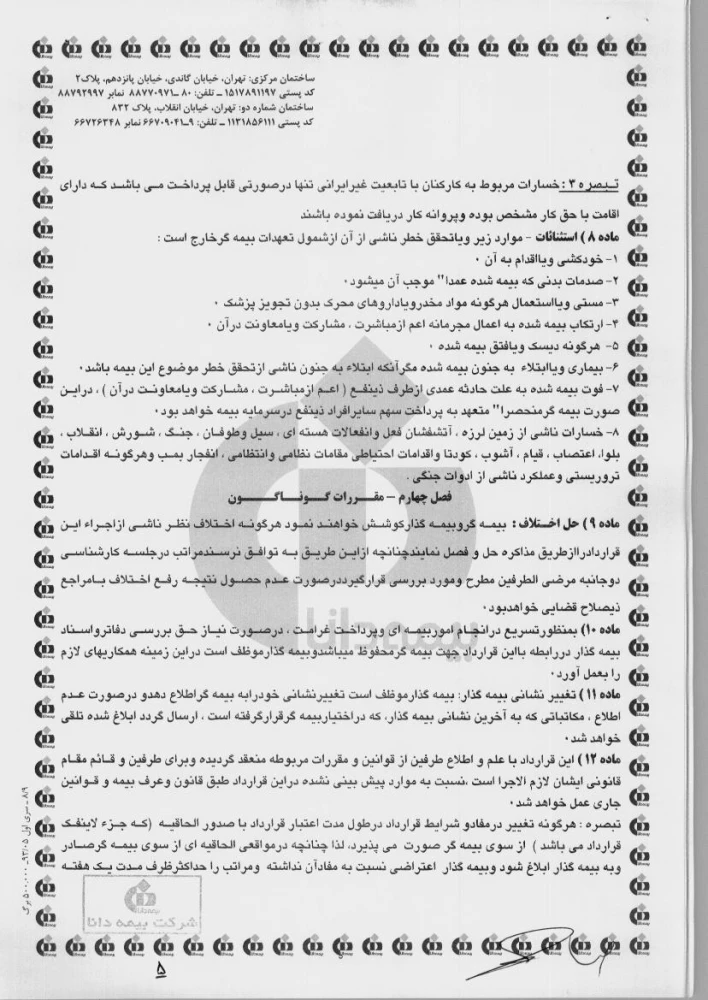 ساختمان مرکزی: تهران، خیابان گاندی، خیابان پانزدهم، پلاک۲
کد پستی ۱۵۱۷۸۹۱۱۹۷ ــ تلفن: ۸۰ ــ۸۸۷۷۰۹۷۱ نمابر ۸۸۷۹۲۹۹۷
ساختمان شماره دو: تهران، خیابان انقلاب، پلاک ۸۳۲
کد پستی ۱۱۳۱۸۵۶۱۱۱ ــ تلفن: ۹ــ۶۶۷۰۹۰۴۱ نمابر ۶۶۷۲۶۳۴۸
تبصره ۳ : خسارات مربوط به کارکنان با تابعیت غیرایرانی تنها درصورتی قابل پرداخت می باشد که دارای
اقامت با حق کار مشخص بوده وپروانه کار دریافت نموده باشند
ماده ۸ ) استثنائات - موارد زیر ویاتحقق خطر ناشی از آن ازشمول تعهدات بیمه گرخارج است :
۱- خودکشی ویااقدام به آن ۰
۲- صدمات بدنی که بیمه شده عمدا" موجب آن میشود۰
۳- مستی ویااستعمال هرگونه مواد مخدرویاداروهای محرک بدون تجویز پزشک ۰
۴- ارتکاب بیمه شده به اعمال مجرمانه اعم ازمباشرت ، مشارکت ویامعاونت درآن ۰
۵- هرگونه دیسک ویافتق بیمه شده ۰
۶- بیماری ویاابتلاء به جنون بیمه شده مگرآنکه ابتلاء به جنون ناشی ازتحقق خطر موضوع این بیمه باشد۰
۷- فوت بیمه شده به علت حادثه عمدی ازطرف ذینفع ( اعم ازمباشرت ، مشارکت ویامعاونت درآن ) ، دراین
صورت بیمه گرمنحصرا" متعهد به پرداخت سهم سایرافراد ذینفع درسرمایه بیمه خواهد بود۰
۸- خسارات ناشی از زمین لرزه ، آتشفشان فعل وانفعالات هسته ای ، سیل وطوفان ، جنگ ، شورش ، انقلاب ،
بلوا، اعتصاب ، قیام ، آشوب ، کودتا واقدامات احتیاطی مقامات نظامی وانتظامی ، انفجار بمب وهرگونه اقدامات
تروریستی وعملکرد ناشی از ادوات جنگی .
فصل چهارم – مقررات گوناگون
ماده ۹ ) حل اختلاف : بیمه گروبیمه گذارکوشش خواهند نمود هرگونه اختلاف نظر ناشی ازاجراء این
قراردادراازطریق مذاکره حل و فصل نمایندچنانچه ازاین طریق به توافق نرسندمراتب درجلسه کارشناسی
دوجانبه مرضی الطرفین مطرح ومورد بررسی قرارگیرددرصورت عدم حصول نتیجه رفع اختلاف بامراجع
ذیصلاح قضایی خواهدبود۰
ماده ۱۰) بمنظورتسریع درانجام اموربیمه ای وپرداخت غرامت ، درصورت نیاز حق بررسی دفاترواسناد
بیمه گذار دررابطه بااین قرارداد جهت بیمه گرمحفوظ میباشدوبیمه گذارموظف است دراین زمینه همکاریهای لازم
را بعمل آورد۰
ماده ۱۱ ) تغییر نشانی بیمه گذار: بیمه گذارموظف است تغییرنشانی خودرابه بیمه گراطلاع دهدو درصورت عدم
اطلاع ، مکاتباتی که به آخرین نشانی بیمه گذار، که دراختیاربیمه گرقرارگرفته است ، ارسال گردد ابلاغ شده تلقی
خواهد شد۰
ماده ۱۲ ) این قرارداد با علم و اطلاع طرفین از قوانین و مقررات مربوطه منعقد گردیده وبرای طرفین و قائم مقام
قانونی ایشان لازم الاجرا است ،نسبت به موارد پیش بینی نشده دراین قرارداد طبق قانون وعرف بیمه و قوانین
جاری عمل خواهد شد۰
تبصره : هرگونه تغییر درمفادو شرایط قرارداد درطول مدت اعتبار قرارداد با صدور الحاقیه (که جزء لاینفک
قرارداد می باشد ) از سوی بیمه گر صورت می پذیرد، لذا چنانچه درمواقعی الحاقیه ای از سوی بیمه گرصادر
وبه بیمه گذار ابلاغ شود وبیمه گذار اعتراضی نسبت به مفادآن نداشته ومراتب را حداکثرظرف مدت یک هفته
بیمه دانا
شرکت بیمه دانا
۵